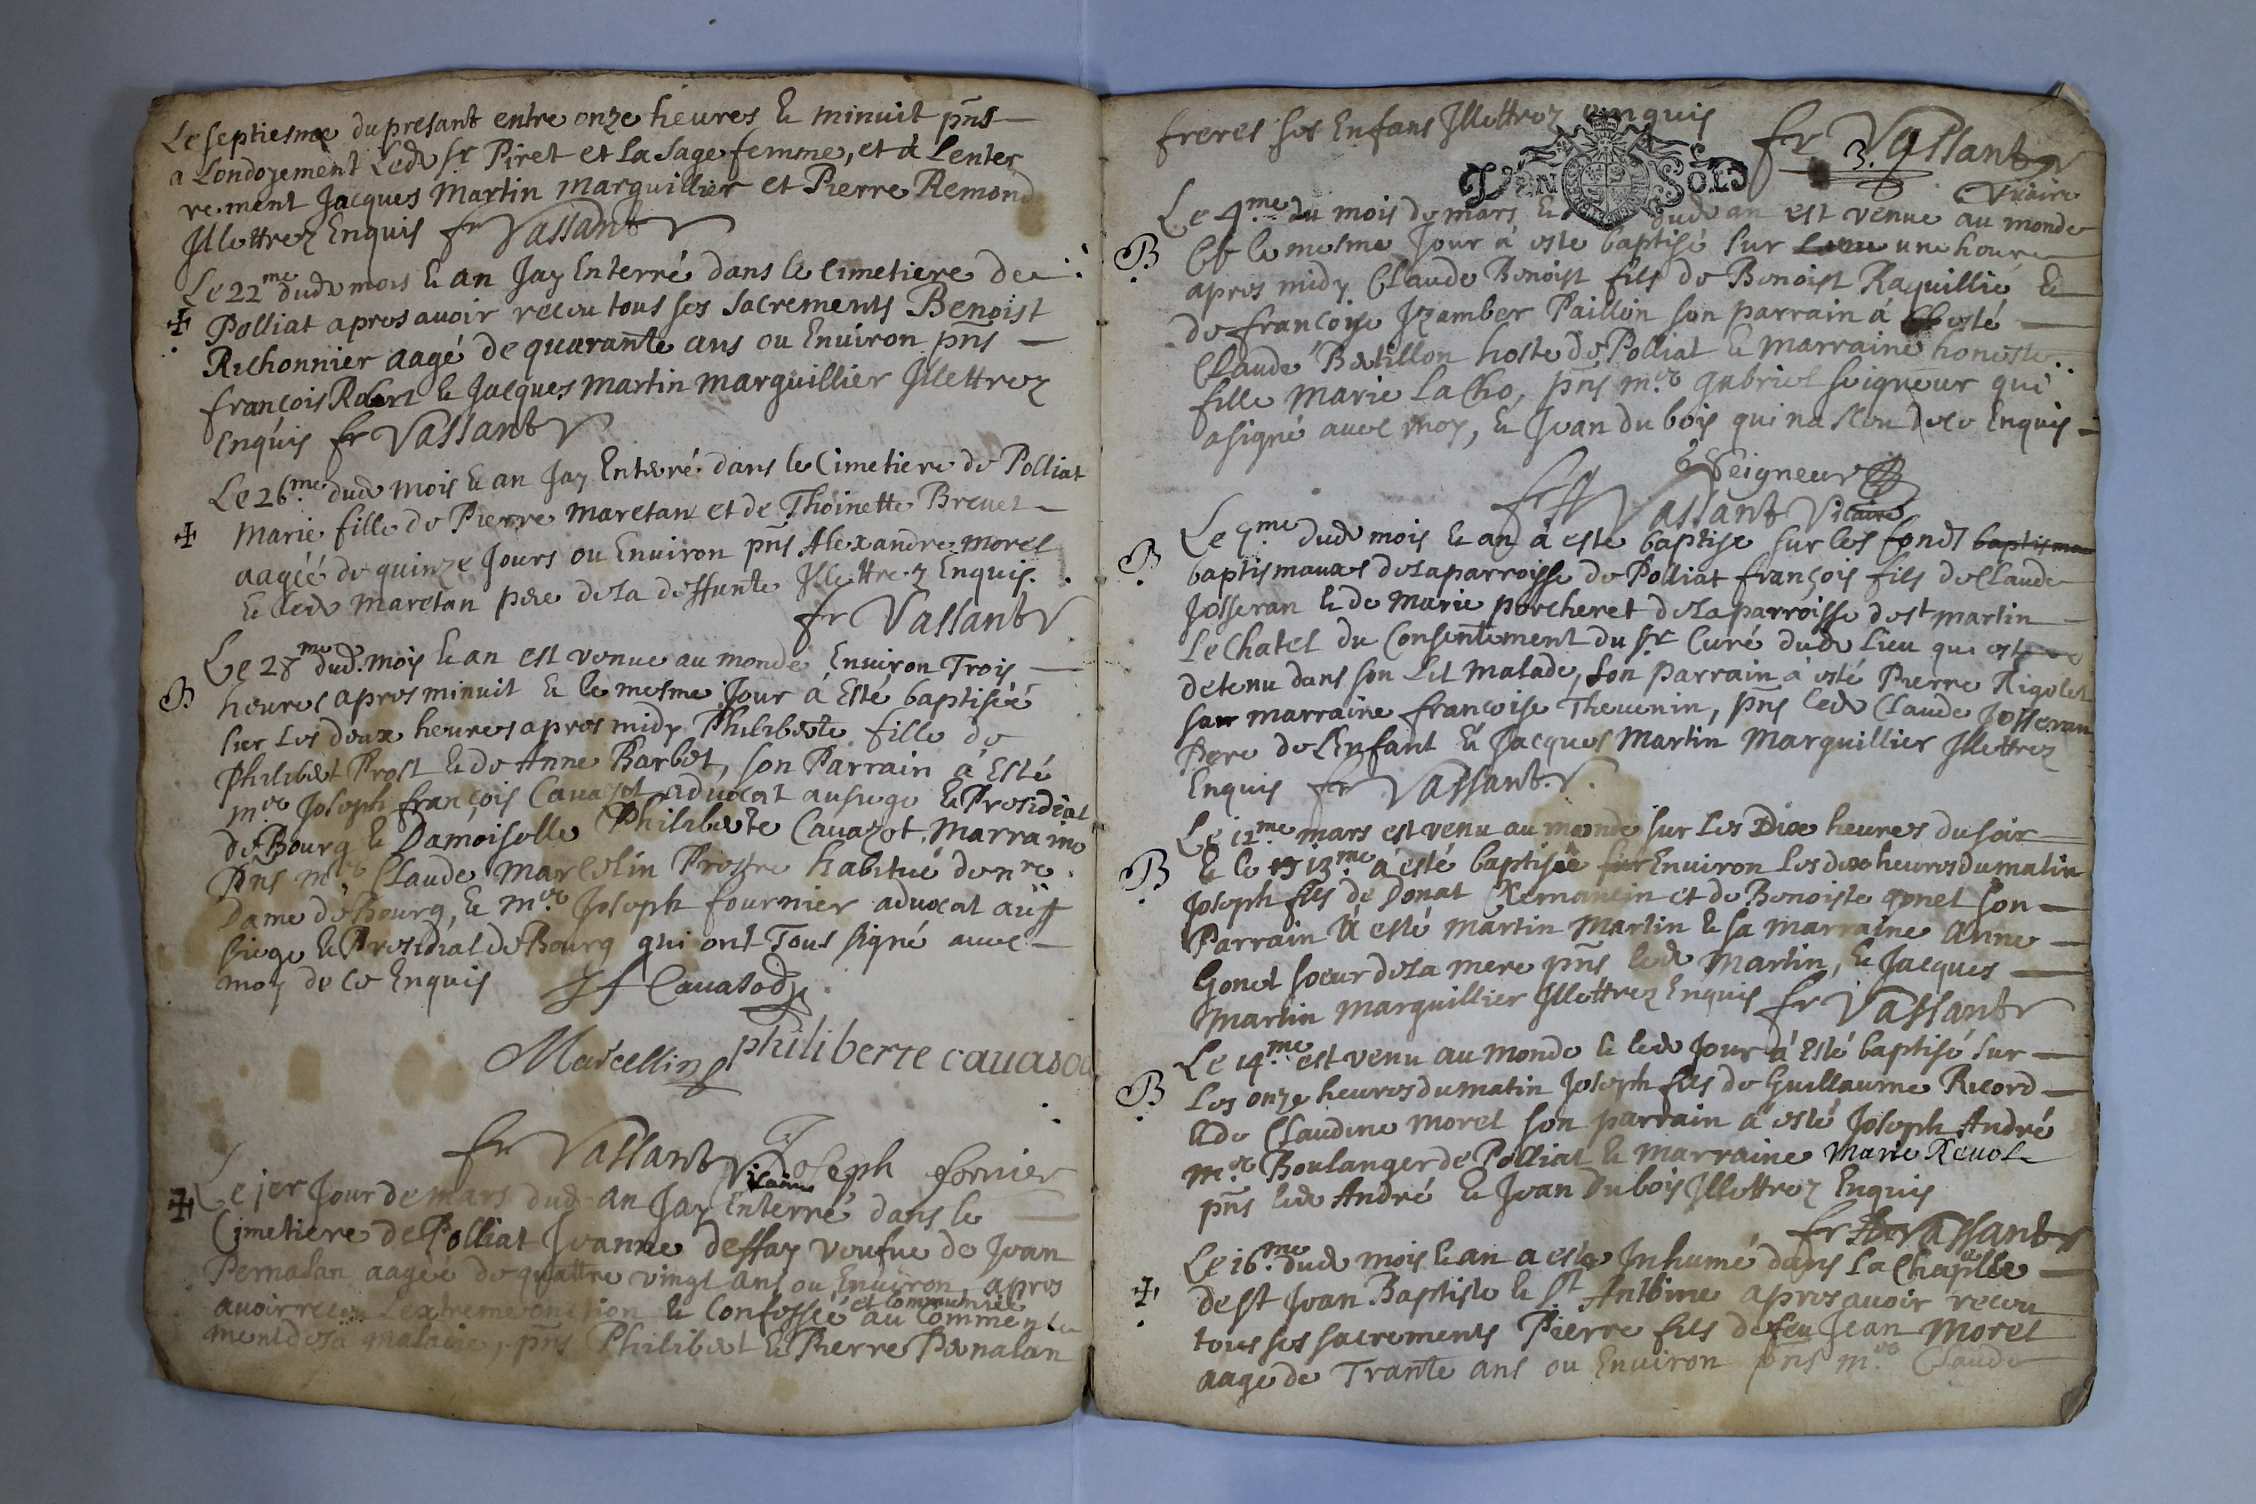 Le septiesme du presant entre onze heures & minuit pñs
a Londoyement Led. Sr Piret et La Sage femme, et à Lenter
rement Jacques Martin marguillier et Pierre Remond
Jllettrez Enquis fr Vassant
Le 22me dud. mois & an Jay Enterré dans le Cimetiere de
Polliat apres avoir receu tous ses Sacrements Benoist
Richonnier aagé de quarante ans ou Environ pñs
françois Robert & Jacques Martin marguillier Jllettrez
Enquis fr Vassant
Le 26me dud. mois & an Jay Enterré dans le Cimetiere de Polliat
Marie fille de Pierre Maretan et de Thoinette Brevet
aagéé de quinze Jours ou Environ pñs Alexandre Morel
& led. Maretan pere de la deffunte Jllettrez Enquis.
fr Vassant
B Le 28me dud. mois & an est venue au monde Environ Trois
heures apres minuit & le mesme Jour à Esté baptiséé
sur Les deux heures apres midy Philiberte fille de
Philibert Prost & de Anne Barbet, son Parrain à Esté
m.re Joseph françois Cavazot advocat au siege & Presidial
de Bourg & Damoiselle Philiberte Cavazot, Marraine
Pñs m.re Claude Marcelin Prestre habitué de nre
Dame de Bourg, & m.re Joseph fournier advocat au
siege & Presidial de Bourg qui ont Tous signé avec
moy de ce Enquis Jf Cavasod
Marcellin philiberte cavasod
fr Vassant Vicaire Joseph fornier
Le 1er Jour de mars dud. an Jay Enterré dans le
Cimetiere de Polliat Jeanne deffay veufue de Jean
Penalan aagéé de quattre vingt ans ou Environ apres
avoir receu Lextreme onction & Confesséé et Communiéé au Commence
ment de sa maladie, pñs Philibert & Pierre Penalan
freres ses Enfans Jllettrez enquis
fr Vassant
Vicaire
3.
DEN SOLD
B Le 4.me du mois de mars & dud. an est venue au monde
Et le mesme Jour à esté baptisé sur une heure
apres midy Claude Benoist fils de Benoist Raquillié &
de francoise Jzamber Paillon son parrain à esté
Claude Bertillon hoste de Polliat & Marraine honeste
fille Marie Lacho, pñs m.re gabriel Seigneur qui
a signé avec moy, & Jean du bois qui na sceu de ce Enquis
Seigneur
fr Vassant Vicaire
B Le 9.me dud. mois & an à esté baptisé sur les fonds baptismau
baptismaux de la parroisse de Polliat françois fils de Claude
Josseran & de Marie porcheret de la parroisse de st martin
Le Chatel du Consentement du Sr Curé dud. Lieu qui est
detenu dans son Lit malade, Son parrain à esté Pierre Rigolet
sa marraine francoise Thevenin, pñs led. Claude Josseran
Pere de L'Enfant & Jacques Martin Marguillier Jllettrez
Enquis fr Vassant.
B Le 12.me mars est venu au monde sur Les Dix heures du soir
& le 13.me à esté baptisée sur Environ Les dix heures du matin
Joseph fils de Donat et de Benoiste gonet son
Parrain à esté Martin Martin & sa marraine Anne
Gonet soeur de la mere pñs led. Martin, & Jacques
Martin Marguillier Jllettrez Enquis fr Vassant
B Le 14.me est venu au monde & led. Jour à Esté baptisé sur
Les onze heures du matin Joseph fils de Guillaume Ricord
& de Claudine Morel son parrain à esté Joseph André
m.re Boulanger de Polliat & marraine Marie Revol
pñs led. André & Jean Dubois Jllettrez Enquis
fr Vassant
Le 16.me dud. mois & an a esté Jnhumé dans La Chapelle
de st Jean Baptiste & st Anthoine apres avoir receu
tous ses sacrements Pierre fils de feu Jean Morel
aage de Trante ans ou Environ pñs m.re Claude